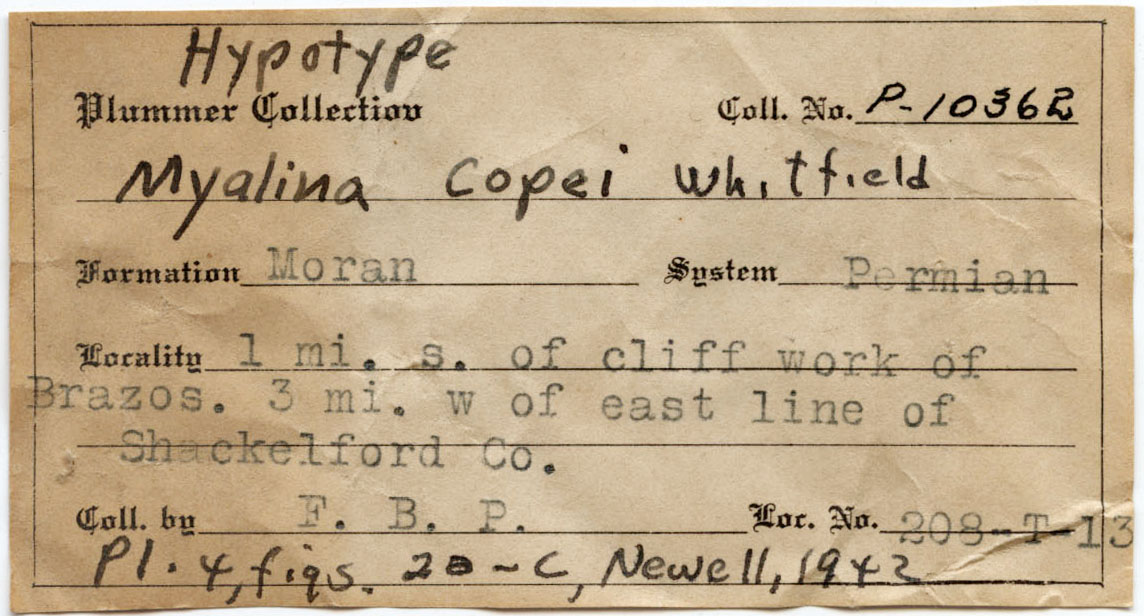 Hypotype
Plummer Collection Coll. No. P-10362
Myalina Copei Whitfield
Formation Moran System Permian
Locality 1 mi. s. of cliff work of
Brazos. 3 mi. w of east line of
Shackelford Co.
Coll. by F. B. P. Loc. No. 208-T-13
Pl. 4, figs. 2a-c, Newell, 1942